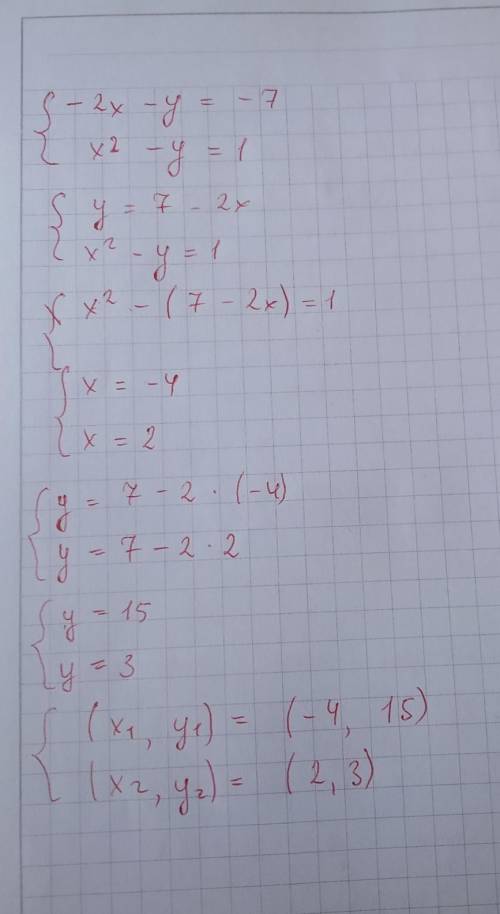 { -2x - y = -7
x² - y = 1
{ y = 7 - 2x
x² - y = 1
x² - (7 - 2x) = 1
{ x = -4
x = 2
{ y = 7 - 2 · (-4)
y = 7 - 2 · 2
{ y = 15
y = 3
{ (x₁, y₁) = (-4, 15)
(x₂, y₂) = (2, 3)